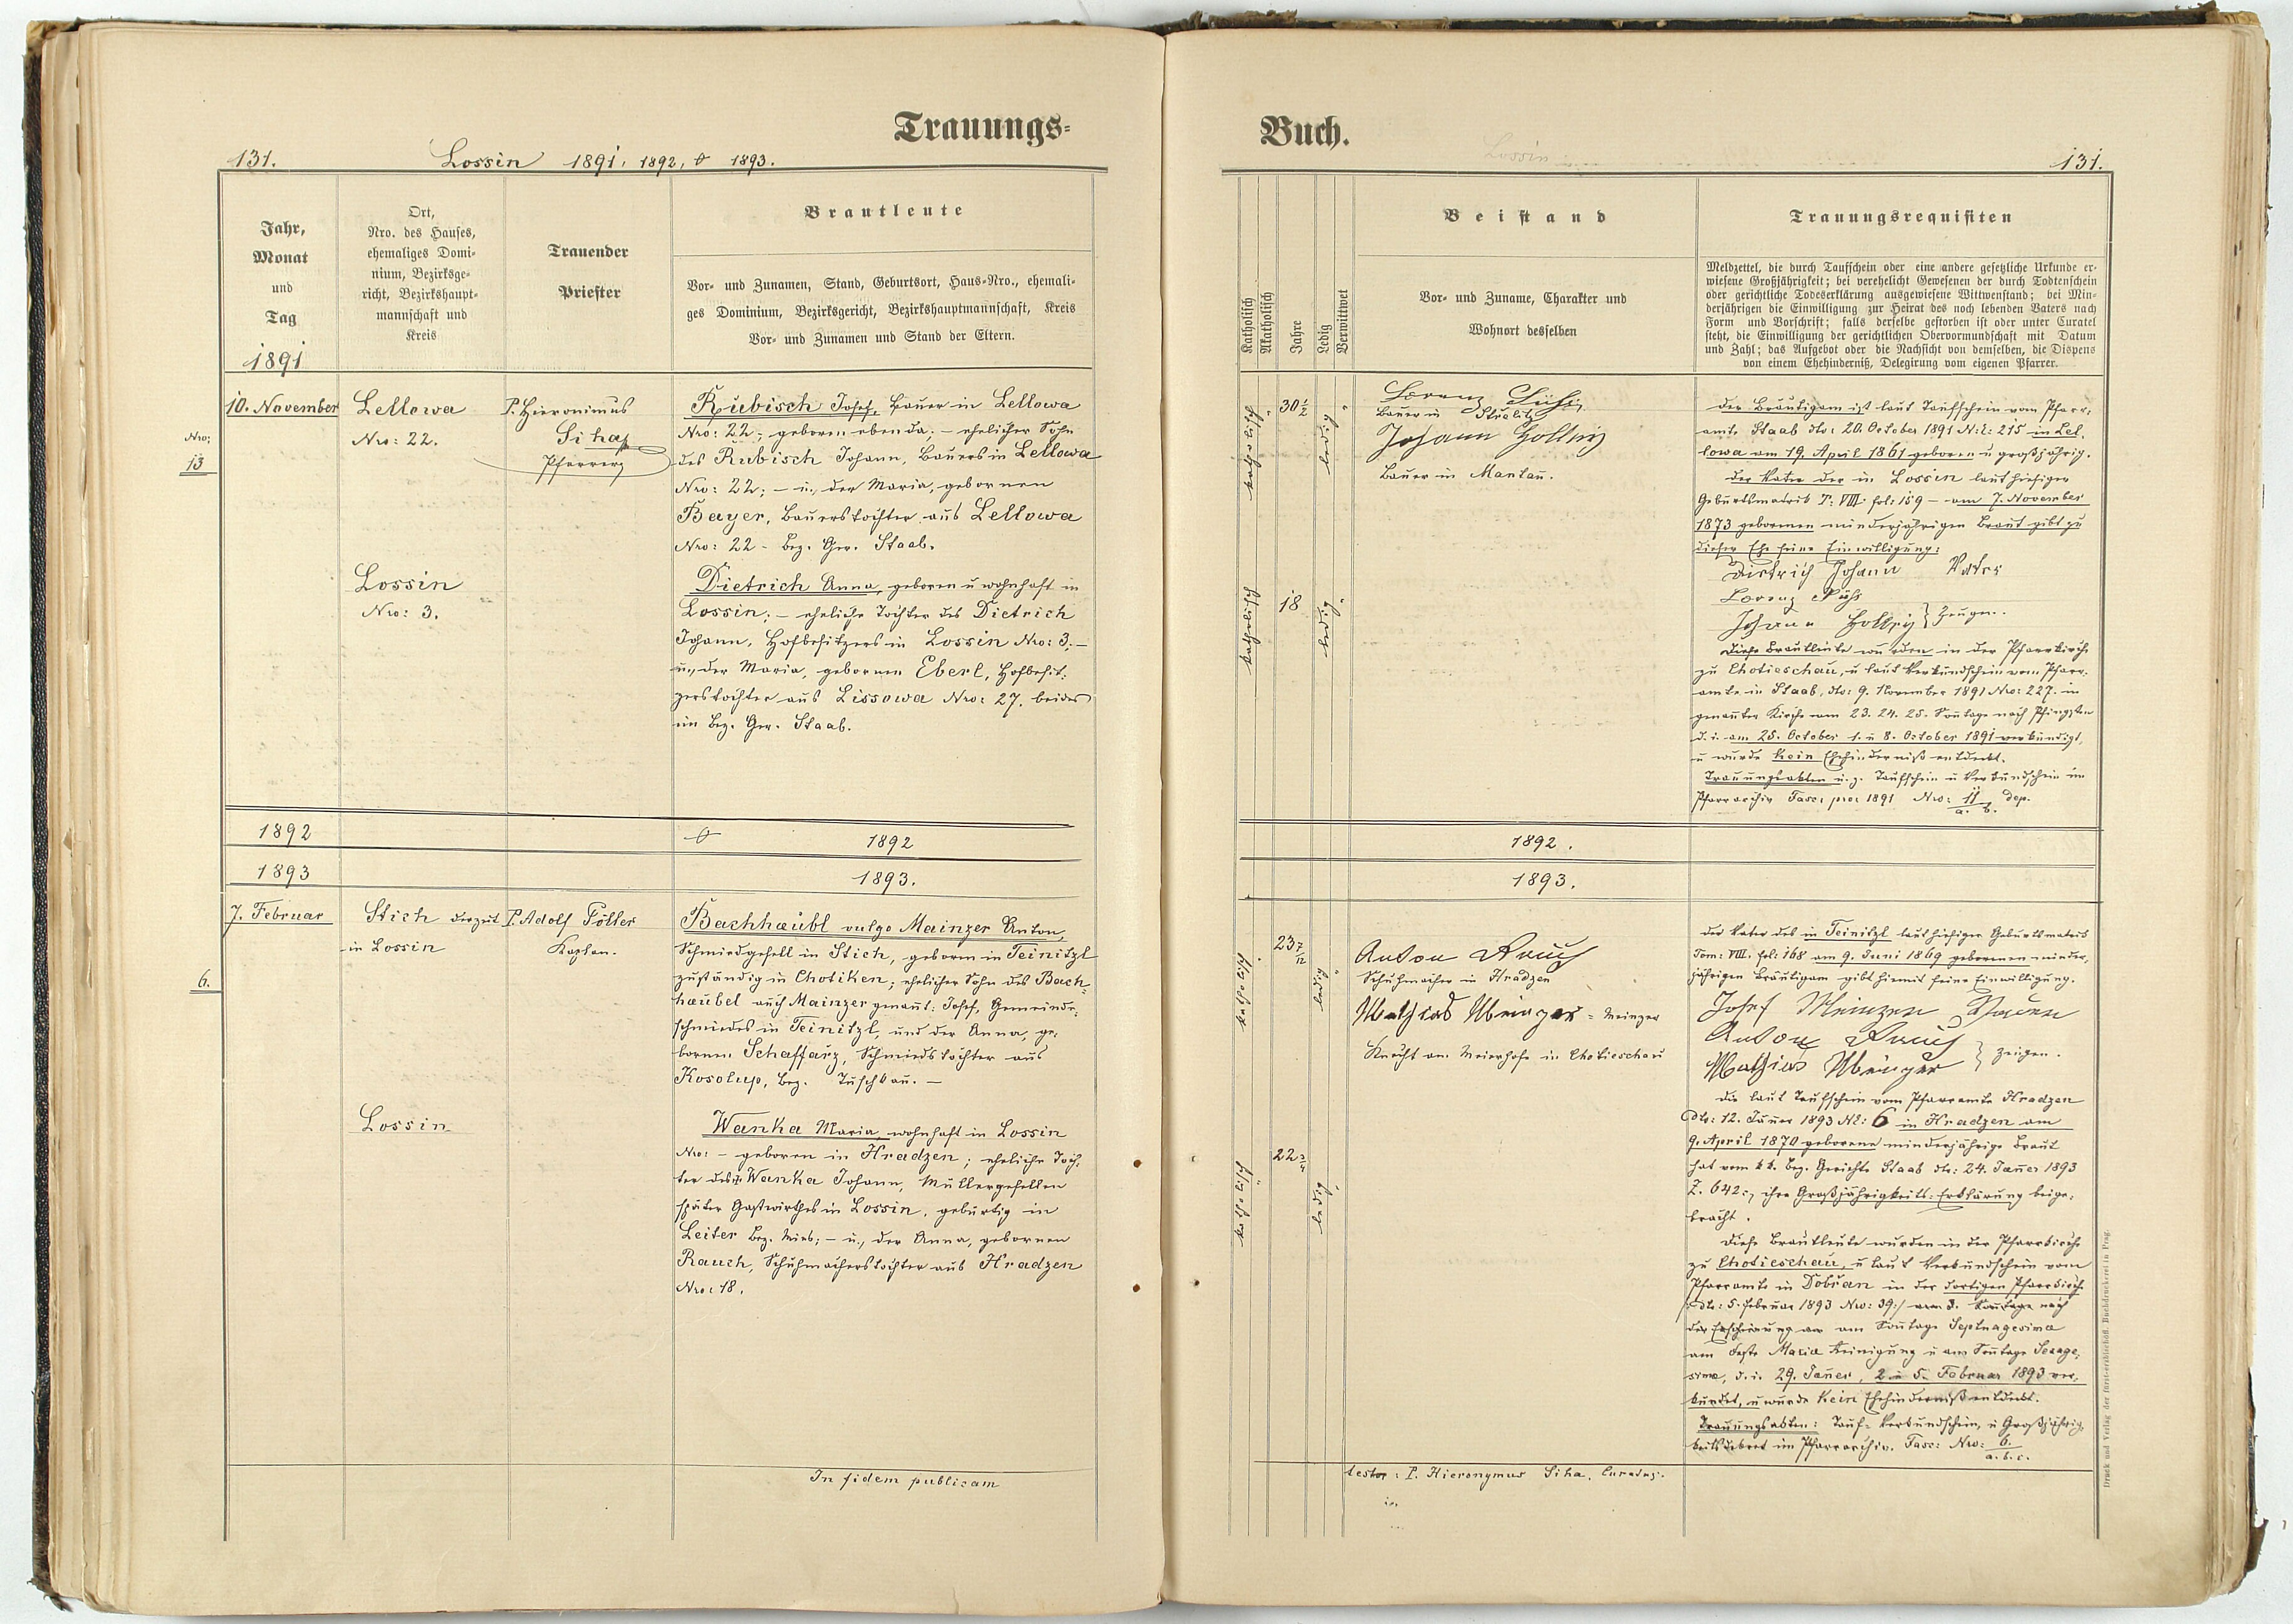 Trauungs=
131. Lossin 1891, 1892, & 1893.
Jahr,
Monat
und
Tag
1891
Ort,
Nro. des Hauses,
ehemaliges Domi-
nium, Bezirksge-
richt, Bezirkshaupt-
mannschaft und
Kreis
Trauender
Priester
Brautleute
Vor- und Zunamen, Stand, Geburtsort, Haus-Nro., ehemali-
ges Dominium, Bezirksgericht, Bezirkshauptmannschaft, Kreis
Vor- und Zunamen und Stand der Eltern.
Nro:
13
10. November
Lellowa
Nro: 22.
P. Hieronimus
Siha
Pfarrer
Rubisch Josef, Bauer in Lellowa
Nro: 22; geboren ebenda; – ehelicher Sohn
des Rubisch Johann, Bauers in Lellowa
Nro: 22; – u. der Maria, gebornen
Bayer, Bauerstochter aus Lellowa
Nro: 22 – Bez. Ger. Staab.
Lossin
Nro: 3.
Dietrich Anna, geboren u wohnhaft in
Lossin; – eheliche Tochter des Dietrich
Johann, Hofbesitzers in Lossin Nro: 3; –
u. der Maria, gebornen Eberl, Hofbesit-
zerstochter aus Lissowa Nro: 27. beides
im Bez. Ger. Staab.
1892
1892
1893
1893.
6.
7. Februar
Stich derzeit
in Lossin
P. Adolf Fötter
Kaplan.
Bachhäubl vulgo Mainzer Anton,
Schmiedgesell in Stich, geboren in Teinitzl
zuständig in Chotiken; ehelicher Sohn des Bach-
haubel auch Mainzer genannt: Josef, Gemeinde-
schmiedes in Teinitzl, und der Anna, ge-
bornen Schaffarz, Schmiedstochter aus
Kosolup, Bez. Tuschkau. –
Lossin
Wanka Maria, wohnhaft in Lossin
Nro: – geboren in Hradzen; eheliche Toch-
ter des Wanka Johann, Müllergesellen
später Gastwirthes in Lossin, gebürtig in
Leiter Bez. Mies; – u. der Anna, gebornen
Rauch, Schuhmacherstochter aus Hradzen
Nro: 18.
In fidem publicam
Buch.
Lossin
131.
Katholisch
Akatholisch
Jahre
Ledig
Verwittwet
Beistand
Vor- und Zuname, Charakter und
Wohnort desselben
Trauungsrequisiten
Meldzettel, die durch Taufschein oder eine andere gesetzliche Urkunde er-
wiesene Großjährigkeit; bei verehelicht Gewesenen der durch Todtenschein
oder gerichtliche Todeserklärung ausgewiesene Wittwenstand; bei Min-
derjährigen die Einwilligung zur Heirat des noch lebenden Vaters nach
Form und Vorschrift; falls derselbe gestorben ist oder unter Curatel
steht, die Einwilligung der gerichtlichen Obervormundschaft mit Datum
und Zahl; das Aufgebot oder die Nachsicht von demselben, die Dispens
von einem Ehehinderniß, Delegirung vom eigenen Pfarrer.
katholisch
30 1/2
ledig
Lorenz Süß
Bauer in
Johann
Bauer in Mantau.
Der Bräutigam ist laut Taufschein vom Pfarr-
amte Staab dto: 20. October 1891 N. E: 215 in Lel-
lowa am 19. April 1861 geboren u großjährig.
Der Vater der in Lossin laut hiesiger
Geburtsmatrik T: VIII. fol: 159 – am 7. November
1873 gebornen minderjährigen Braut gibt zu
dieser Ehe seine Einwilligung:
Dietrich Johann Vater
Lorenz Süß
Johann
Zeugen.
katholisch
18
ledig
Diese Brautleute wurden in der Pfarrkirche
zu Chotieschau, u laut Verkündschein vom Pfarr-
amte in Staab, dto: 9. November 1891 Nro: 227. in
genannter Kirche am 23. 24. 25. Sonntage nach Pfingsten
d. i. am 25. October 1. u 8. October 1891 verkündigt,
u wurde kein Ehehinderniß entdeckt.
Trauungsakten u. z. Taufschein u Verkündschein im
Pfarrarchiv Fasc: pro: 1891 Nro: 11 dep.
a. b.
1892.
1893.
katholisch
23 7/12
ledig
Anton Rauch
Schuhmacher in Hradzen
Mathias Meinzer = Meinzer
Knecht am Meierhofe in Chotieschau
Der Vater des in Teinitzl laut hiesiger Geburtsmatrik
Tom: VIII. fol: 168 am 9. Juni 1869 gebornen minder-
jährigen Bräutigam gibt hiemit seine Einwilligung.
Josef Meinzer
Anton Rauch
Mathias Meinzer
Zeugen.
katholisch
22 3/4
ledig
Die laut Taufschein vom Pfarramte Hradzen
dto: 12. Jäner 1893 NE: 6 in Hradzen am
9. April 1870 geborene minderjährige Braut
hat vom k k. Bez. Gerichte Staab dto: 24. Jäner 1893
Z. 642:, ihre Großjährigkeits-Erklärung beige-
bracht.
Diese Brautleute wurden in der Pfarrkirche
zu Chotieschau, u laut Verkündschein vom
Pfarramte in Dobřan in der dortigen Pfarrkirche
dto: 5. Februar 1893 Nro: 39:/ am 3. Sonntage nach
der Erscheinung am Sonntage Septuagesima
am Feste Maria Reinigung u am Sonntage Sexage-
sima, d. i. 29. Jäner, 2. u 5. Februar 1893 ver-
kündet, u wurde kein Ehehinderniß entdeckt.
Trauungsakten: Tauf- Verkündschein, u Großjährig-
keitsdekret im Pfarrarchiv. Fasc: Nro: 6.
a. b. c.
testor: P. Hieronymus Siha. Curatus.
Druck und Verlag der fürst-erzbischöfl. Buchdruckerei in Prag.